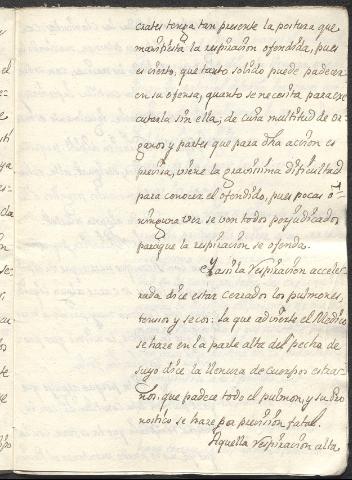 crates tenga tan presente la postura que
manifiesta la respiracion ofendida, pues
es cierto, que tanto solido puede padecer
en su ofensa, quanto se necesita para exe
cutarla sin ella; de cuia multitud de or
ganos y partes que para dha accion es
precisa, viene la gravissima dificultad
para conocer el ofendido, pues pocas ó
ninguna vez se ven todos perjudicados
paraque la respiracion se ofenda.
Y assi la respiracion accele
rada dice estar cerrados los pulmones,
tensos y secos: la que advierte el Medico
se haze en la parte alta del pecho de
suyo dice la llenura de cuerpos estra
ños, que padece todo el pulmon, y su pro
nostico se haze por prevision fatal.
Aquella respiracion alta